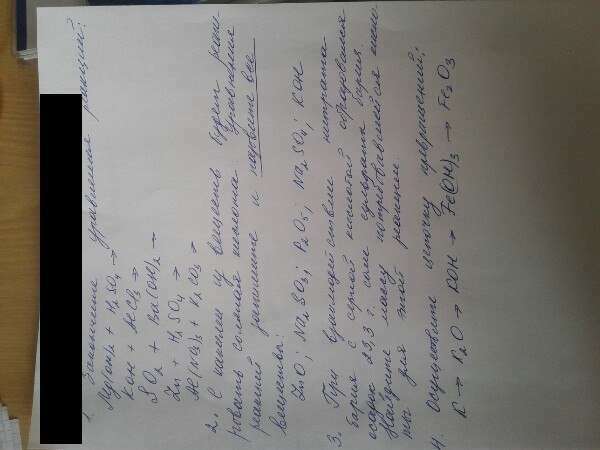 1. Закончите уравнения реакций:
Mg(OH)2 + H2SO4 →
KOH + AlCl3 →
SO2 + Ba(OH)2 →
Zn + H2SO4 →
Al(NO3)3 + K2CO3 →
2. С какими из веществ будет реаги-
ровать соляная кислота. Уравнения
реакций запишите и назовите все
вещества:
ZnO; Na2SO3; P2O5; Na2SO4; KOH
3. При взаимодействии нитрата
бария с серной кислотой образовался
осадок 23,3 г. соли сульфата бария
Найдите массу потребовавшейся кисло
ты для этой реакции.
4. Осуществите цепочку превращений:
K → K2O → KOH → Fe(OH)3 → Fe2O3